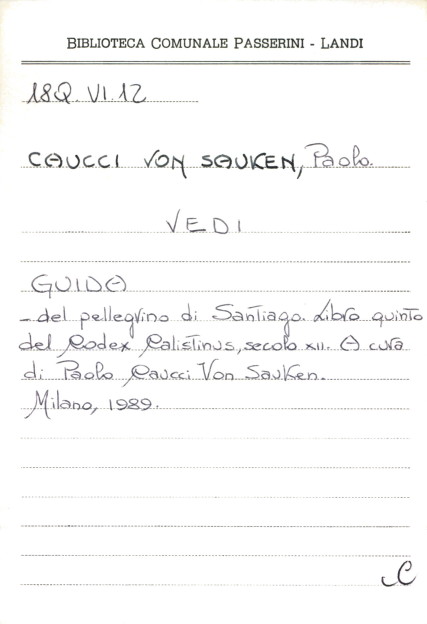 BIBLIOTECA COMUNALE PASSERINI - LANDI
18Q. VI. 12
CAUCCI VON SAUKEN, Paolo.
VEDI
GUIDA
- del pellegrino di Santiago. Libro quinto
del Codex Calistinus, secolo XII. A cura
di Paolo Caucci Von Sauken.
Milano, 1989.
C